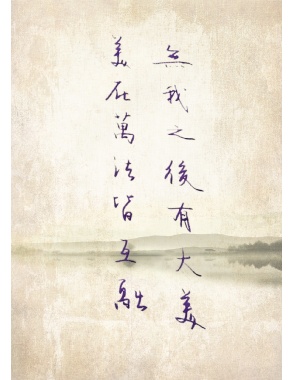 無我之後有大美
美在萬法皆互融